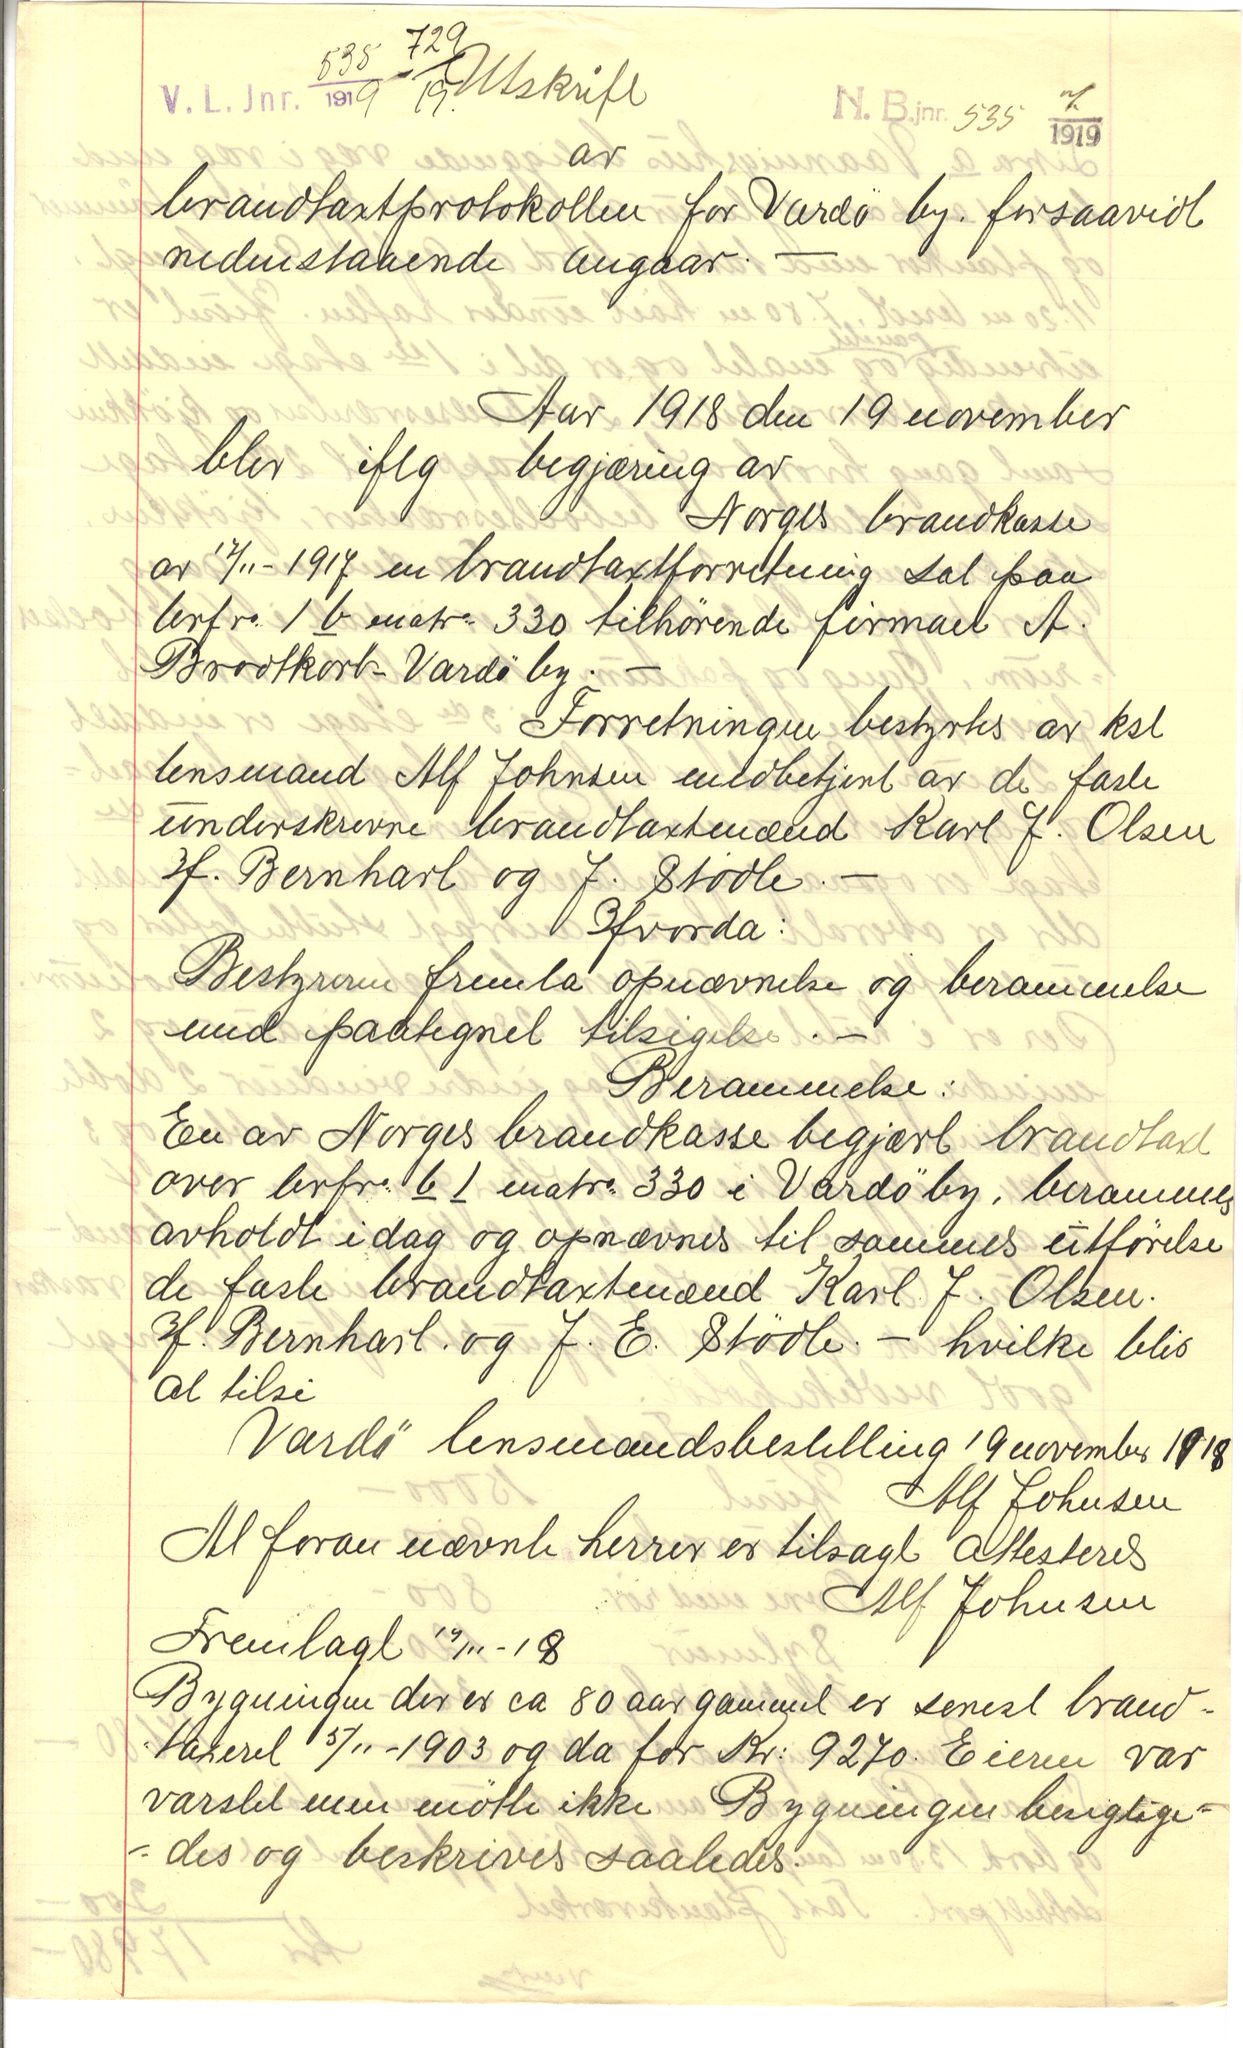 V. L. Jnr. 535/1919 - 729/19. Utskrift
N. B. jnr. 535 1919
av
brandtaxtprotokollen for Vardö by. forsaavidt
nedenstaaende angaar. —
Aar 1918 den 19 november
blev iflg begjæring av
Norges brandkasse
av 12/11-1917 en brandtaxtforretning sat paa
brfrs. 1 b matrs. 330 tilhörende firmaet A.
Brodtkorb - Vardö by. —
Forretningen bestyrtes av kst
lensmand Alf Johnsen medbetjent av de faste
underskrevne brandtaxtmænd Karl J. Olsen
H. Bernhart og J. Stödle. —
Hvorda:
Bestyreren fremla opnævnelse og berammelse
med paategnet tilsigelse. —
Berammelse:
En av Norges brandkasse begjært brandtaxt
over brfrs. b 1 matrs. 330 i Vardö by, berammes
avholdt idag og opnævnes til sammes utförelse
de faste brandtaxtmænd Karl J. Olsen.
H. Bernhart. og J. E. Stödle. — hvilke blir
at tilsi
Vardö lensmandsbestilling 19 november 1918
Alf Johnsen
At foran nævnte herrer er tilsagt attesteres
Alf Johnsen
Fremlagt 19/11-18
Bygningen der er ca 80 aar gammel er senest brand-
-taxeret 5/11-1903 og da for Kr: 9270. Eieren var
varslet men mötte ikke Bygningen besigtige-
-des og beskrives saaledes.